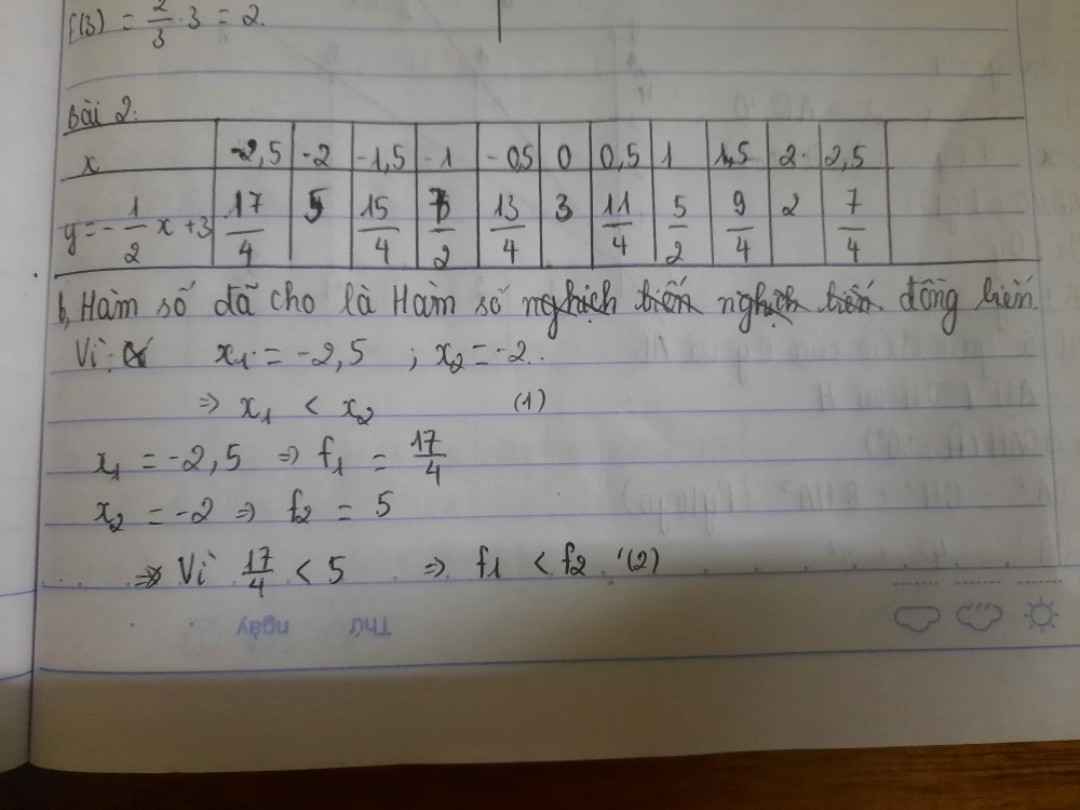 f(3) = 2/3 . 3 = 2.
Bài 2:
x | -2,5 | -2 | -1,5 | -1 | -0,5 | 0 | 0,5 | 1 | 1,5 | 2 | 2,5
y = -1/2 x + 3 | 17/4 | 5 | 15/4 | 7/2 | 13/4 | 3 | 11/4 | 5/2 | 9/4 | 2 | 7/4
b, Hàm số đã cho là Hàm số nghịch biến nghịch biến đồng biến.
Vì: x₁ = -2,5 ; x₂ = -2.
⇒ x₁ < x₂ (1)
x₁ = -2,5 ⇒ f₁ = 17/4
x₂ = -2 ⇒ f₂ = 5
⇒ Vì 17/4 < 5 ⇒ f₁ < f₂ (2)
Thứ ngày